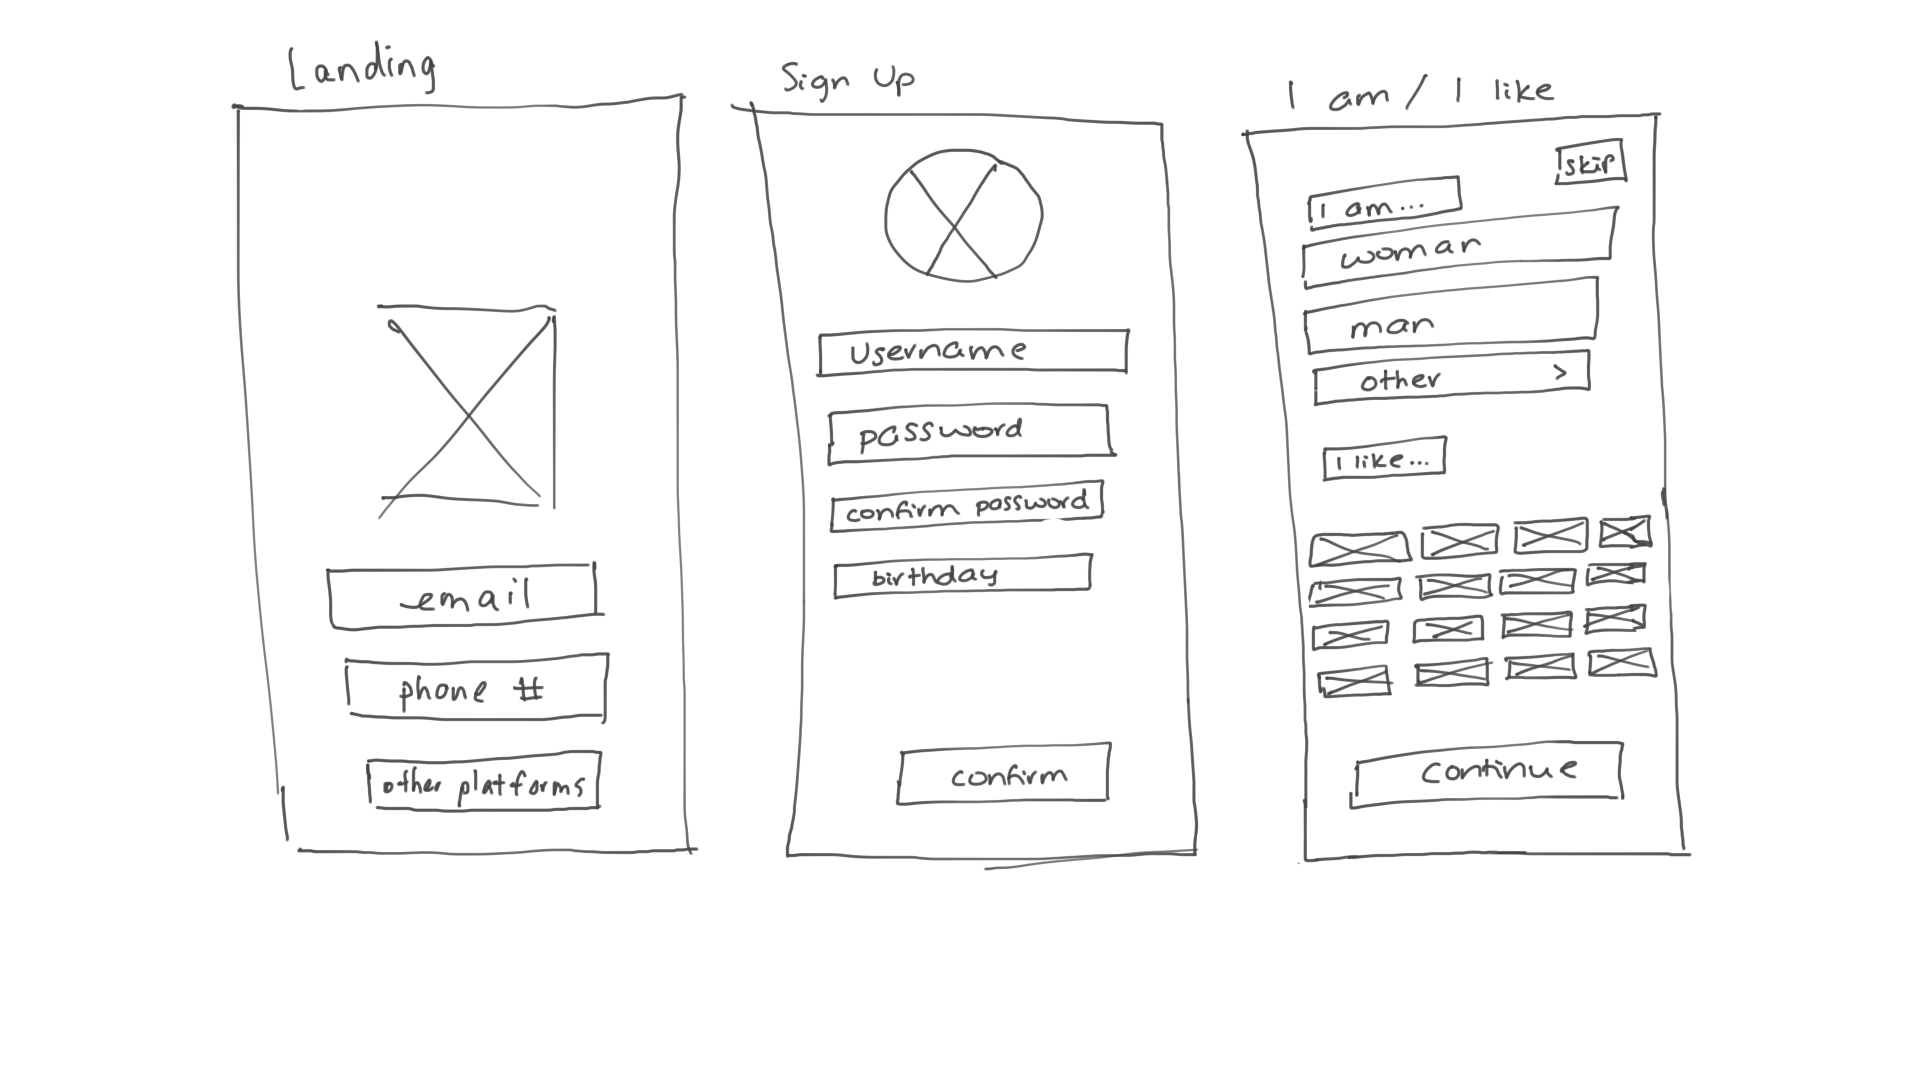 Landing
email
phone #
other platforms
Sign Up
Username
password
confirm password
birthday
confirm
I am / I like
skip
I am...
woman
man
other >
I like...
continue